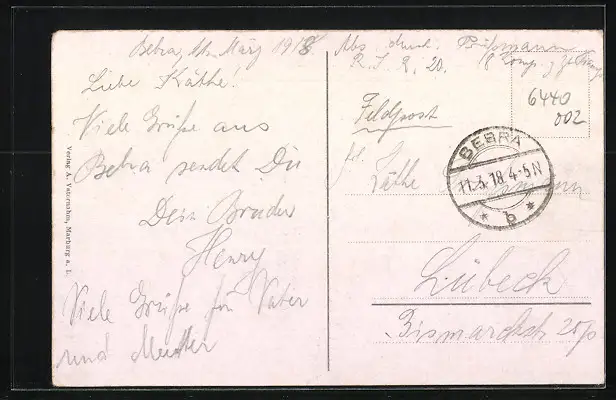 Bebra, 11. März 1918
Liebe Käthe!
Viele Grüße aus
Bebra sendet Dir
Dein Bruder
Henry
Viele Grüße für Vater
und Mutter
Verlag A. Vaternahm, Marburg a. L.
Abs.
R. I. R. 20.
Feldpost
6440
002
BEBRA
11.3.18 4-5N
* b *
Käthe
Lübeck
Bismarckstr. 20